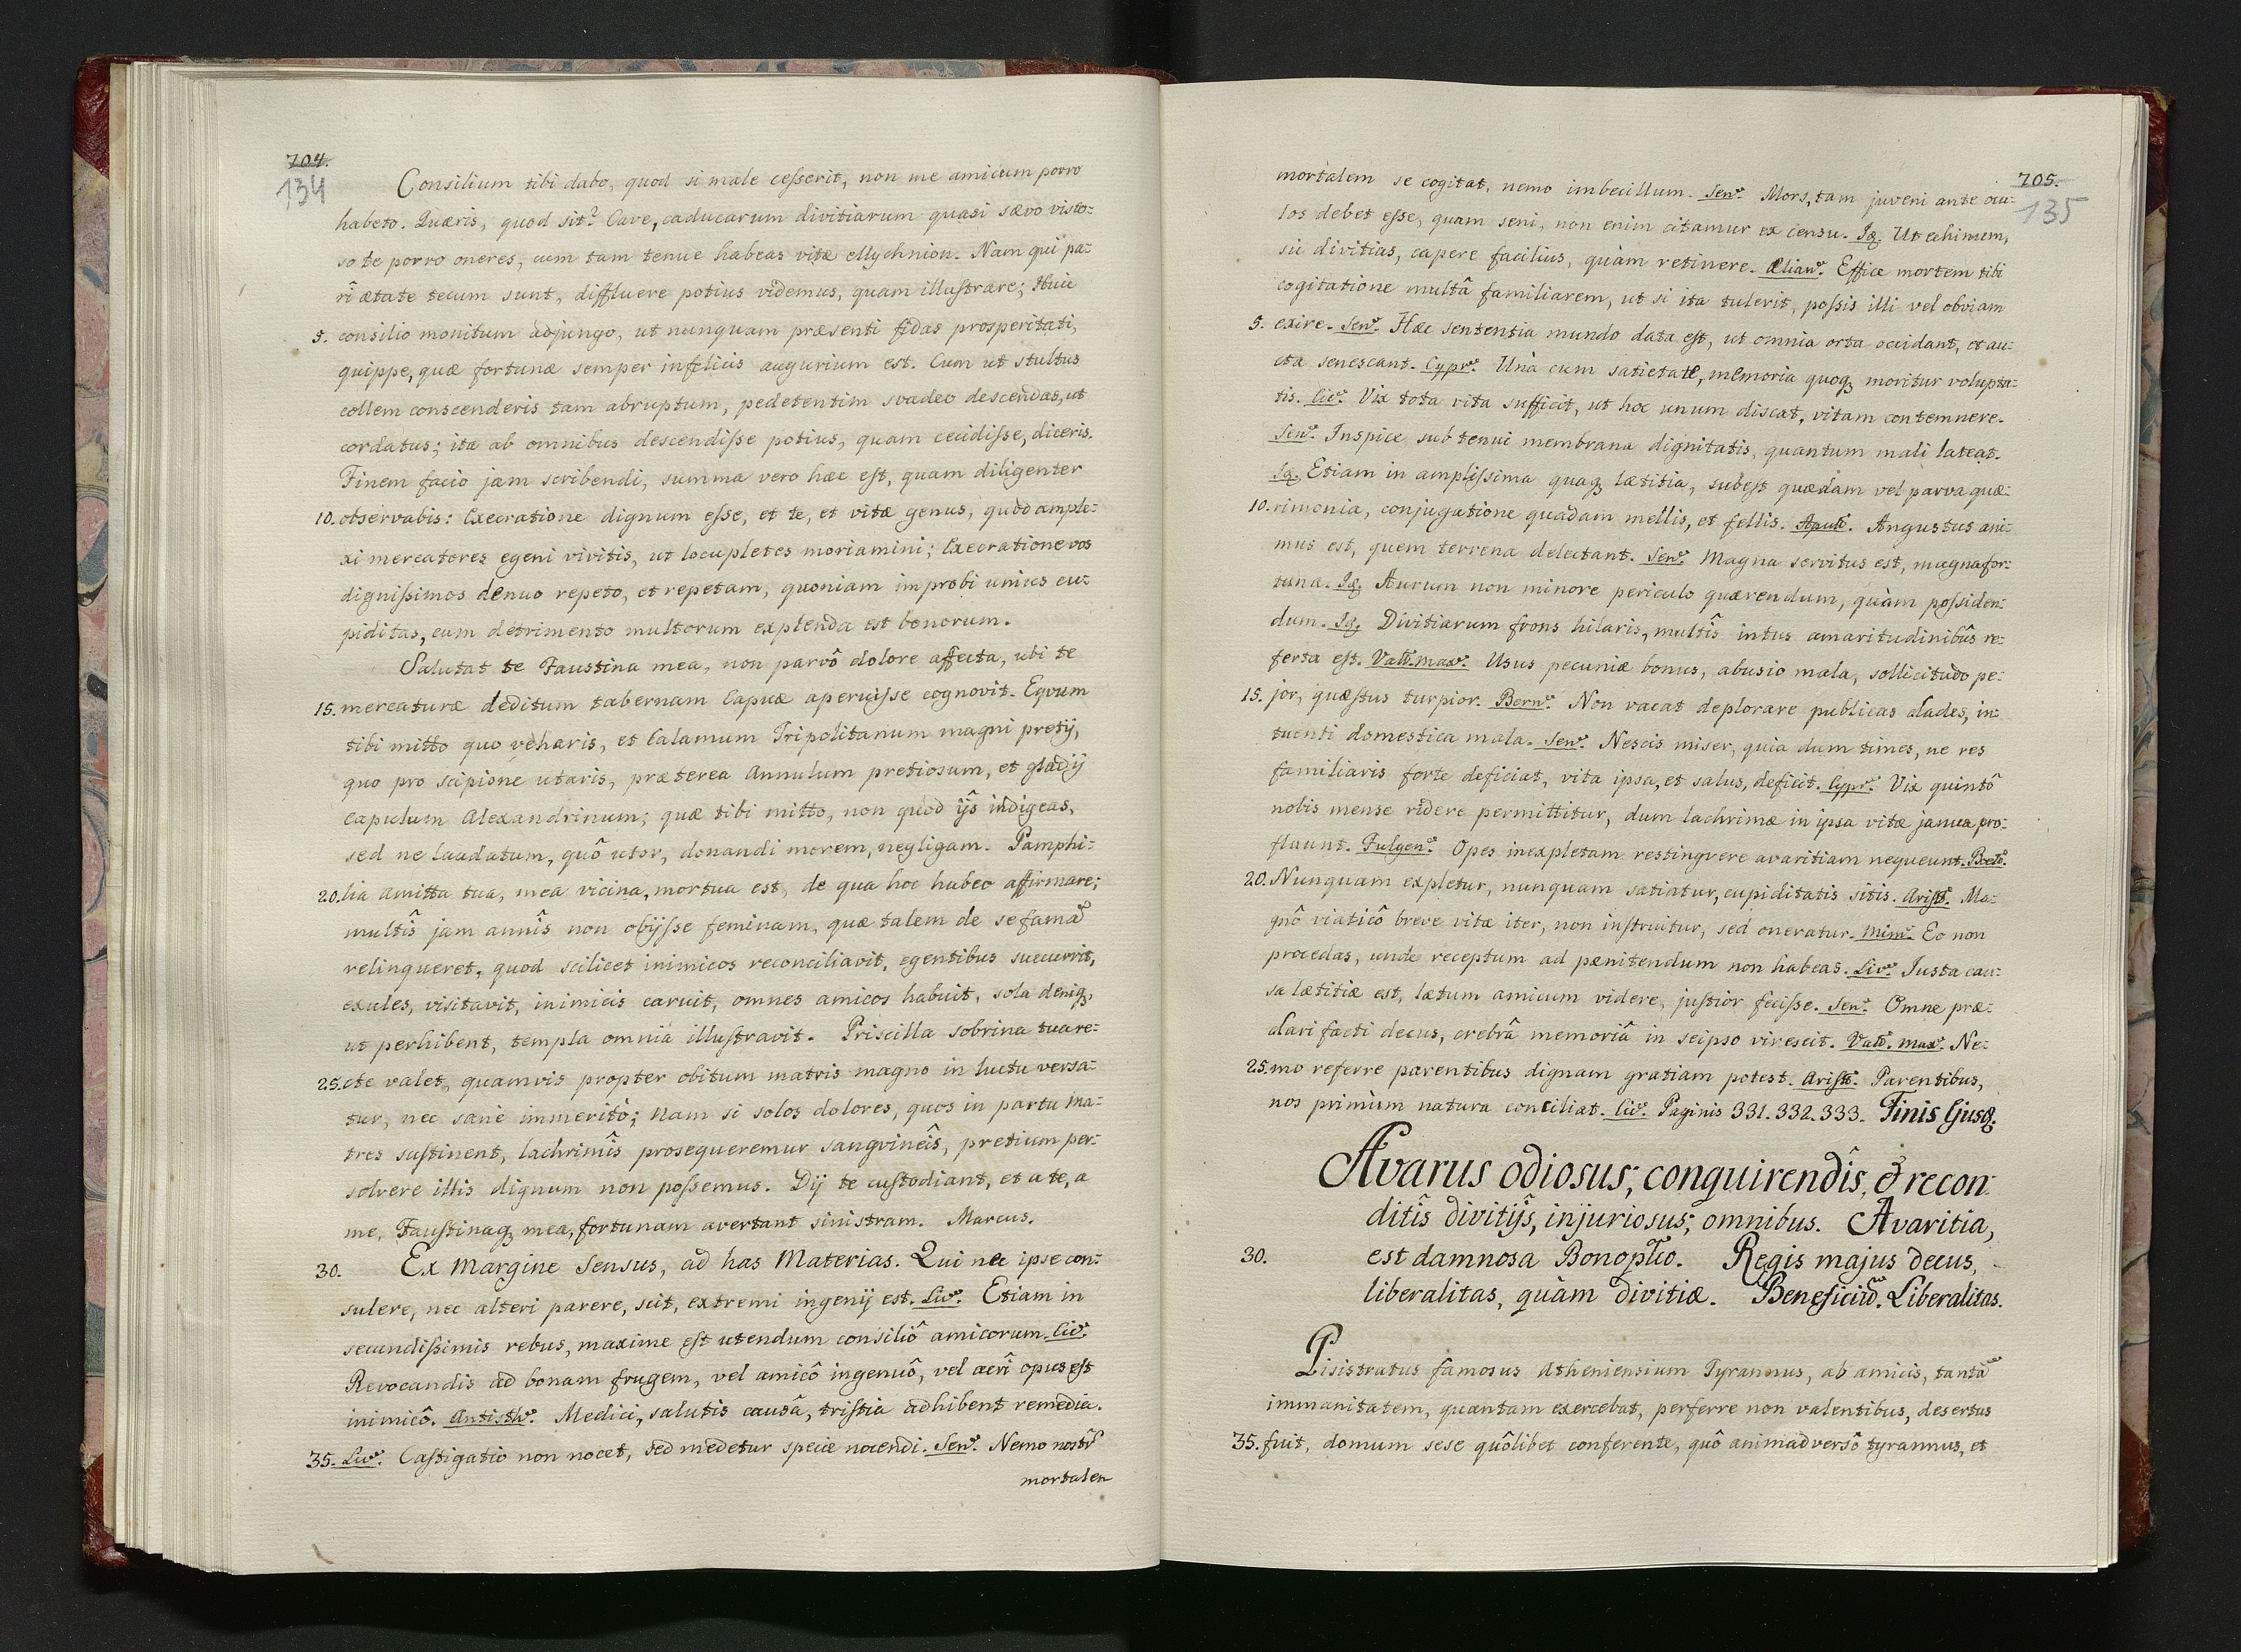 704.
134
Consilium tibi dabo, quod si male cesserit, non me amicum porro
habeto. Quæris, quod sit? Cave, caducarum divitiarum quasi sævo visto-
so te porro oneres, cum tam tenue habeas vitæ ellychnion. Nam qui pa-
rî ætate tecum sunt, diffluere potius videmus, quam illustrare; Huic
5. consilio monitum adjungo, ut nunquam præsenti fidas prosperitati,
quippe, quæ fortunæ semper infelicis augurium est. Cum ut stultus
collem conscenderis tam abruptum, pedetentim svadeo descendas, ut
cordatus; ita ab omnibus descendisse potius, quam cecidisse, diceris.
Finem facio jam scribendi, summa vero hæc est, quam diligenter
10. observabis: Execratione dignum esse, et te, et vitæ genus, quod ample-
xi mercatores egeni vivitis, ut locupletes moriamini; Execratione vos
dignissimos denuo repeto, et repetam, quoniam improbi unius cu-
piditas, cum detrimento multorum explenda est bonorum.
Salutat te Faustina mea, non parvô dolore affecta, ubi te
15. mercaturæ deditum tabernam Capuæ aperuisse cognovit. Eqvum
tibi mitto quo veharis, et Calamum Tripolitanum magni pretij,
quo pro scipione utaris, præterea Annulum pretiosum, et gladij
capulum Alexandrinum; quæ tibi mitto, non quod ijs indigeas,
sed ne laudatum, quô utor, donandi morem, negligam. Pamphi-
20. lia amitta tua, mea vicina, mortua est, de qua hoc habeo affirmare;
multîs jam annîs non obijsse feminam, quæ talem de se famã
relinqueret, quod scilicet inimicos reconciliavit, egentibus succurrit,
exules, visitavit, inimicis caruit, omnes amicos habuit, sola deniq,
ut perhibent, templa omnia illustravit. Priscilla sobrina tua re-
25. cte valet, quamvis propter obitum matris magno in luctu versa-
tur, nec sanè immeritò; nam si solos dolores, quos in partu ma-
tres sustinent, lachrimîs prosequeremur sangvineîs, pretium per-
solvere illis dignum non possemus. Dij te custodiant, et a te, a
me, Faustinaq, mea, fortunam avertant sinistram. Marcus.
30. Ex Margine Sensus, ad has Materias. Qui nec ipse con-
sulere, nec alteri parere, scit, extremi ingenij est. Liv9. Etiam in
secundissimis rebus, maxime est utendum consiliô amicorum. Cic9.
Revocandis ad bonam frugem, vel amicô ingenuô, vel acrî opus est
inimicô. Antisth9. Medici, salutis causâ, tristia adhibent remedia.
35. Liv9. Castigatio non nocet, sed medetur specie nocendi. Sen9. Nemo nostrũ
mortalem
705.
135
mortalem se cogitat, nemo imbecillum. Sen9. Mors, tam juveni ante ocu-
los debet esse, quam seni, non enim citamur ex censu. Iđ. Ut echinum,
sic divitias, capere facilius, quàm retinere. Ælian9. Effice mortem tibi
cogitatione multâ familiarem, ut si ita tulerit, possis illi vel obviam
5. exire. Sen9. Hæc sententia mundo data est, ut omnia orta occidant, et au-
cta senescant. Cypr9. Unà cum satietate, memoria quoq, moritur volupta-
tis. Cic9. Vix tota vita sufficit, ut hoc unum discat, vitam contemnere.
Sen9. Inspice sub tenui membrana dignitatis, quantum mali lateat.
Iđ. Etiam in amplissima quaq, lætitia, subest quædam vel parva quæ-
10. rimonia, conjugatione quadam mellis, et fellis. Apul9. Angustus ani-
mus est, quem terrena delectant. Sen9. Magna servitus est, magna for-
tuna. Iđ. Aurum non minore periculo quærendum, quàm possiden-
dum. Iđ. Divitiarum frons hilaris, multîs intus amaritudinibûs re-
ferta est. Val9. Max9. Usus pecuniæ bonus, abusio mala, sollicitudo pe-
15. jor, quæstus turpior. Bern9. Non vacat deplorare publicas clades, in-
tuenti domestica mala. Sen9. Nescis miser, quia dum times, ne res
familiaris forte deficiat, vita ipsa, et salus, deficit. Cypr9. Vix quintô
nobis mense ridere permittitur, dum lachrimæ in ipsa vitæ janua pro-
fluunt. Fulgen9. Opes inexpletam restingvere avaritiam nequeunt. Boet9.
20. Nunquam expletur, nunquam satiatur, cupiditatis sitis. Arist9. Ma-
gnô viaticô breve vitæ iter, non instruitur, sed oneratur. Mim9. Eo non
procedas, unde receptum ad pænitendum non habeas. Liv9. Justa cau-
sa lætitiæ est, lætum amicum videre, justior fecisse. Sen9. Omne præ-
clari facti decus, crebrâ memoriâ in seipso virescit. Val9. Max9. Ne-
25. mo referre parentibus dignam gratiam potest. Arist9. Parentibus,
nos primùm natura conciliat. Cic9. Paginis 331. 332. 333. Finis Ejusđ.
Avarus odiosus; conquirendîs, & recon-
ditîs divitijs, injuriosus; omnibus. Avaritia,
30. est damnosa Bonopᵇlico. Regis majus decus,
liberalitas, quàm divitiæ. Beneficiũ. Liberalitas.
Pisistratus famosus Atheniensium Tyrannus, ab amicis, tantã
immanitatem, quantam exercebat, perferre non valentibus, desertus
35. fuit, domum sese quôlibet conferente, quô animadversô tyrannus, et